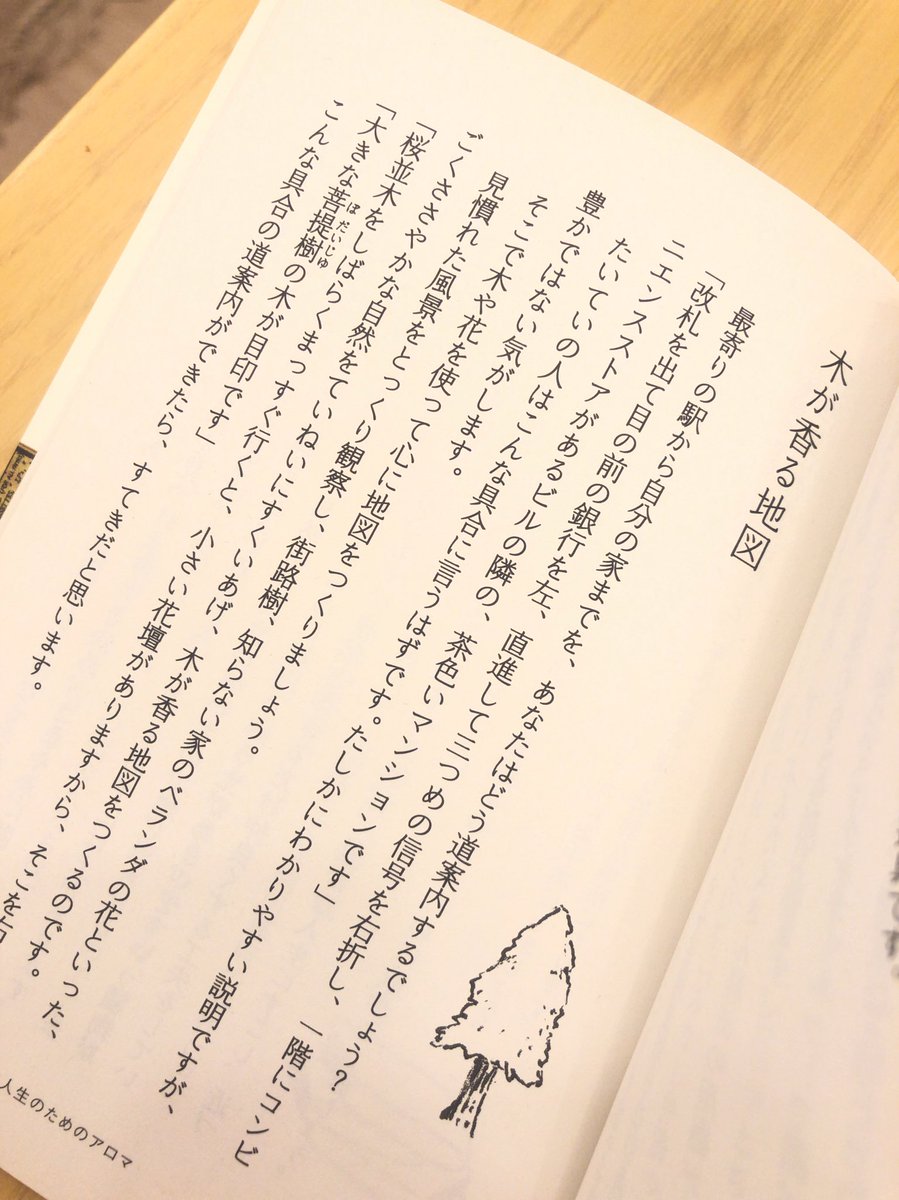 木が香る地図
最寄りの駅から自分の家までを、あなたはどう道案内するでしょう?
「改札を出て目の前の銀行を左、直進して三つめの信号を右折し、一階にコンビ
ニエンスストアがあるビルの隣の、茶色いマンションです」
たいていの人はこんな具合に言うはずです。たしかにわかりやすい説明ですが、
豊かではない気がします。
そこで木や花を使って心に地図をつくりましょう。
見慣れた風景をとっくり観察し、街路樹、知らない家のベランダの花といった、
ごくささやかな自然をていねいにすくいあげ、木が香る地図をつくるのです。
「桜並木をしばらくまっすぐ行くと、小さい花壇がありますから、そこを
「大きな菩提樹の木が目印です」
こんな具合の道案内ができたら、すてきだと思います。
人生のためのアロマ